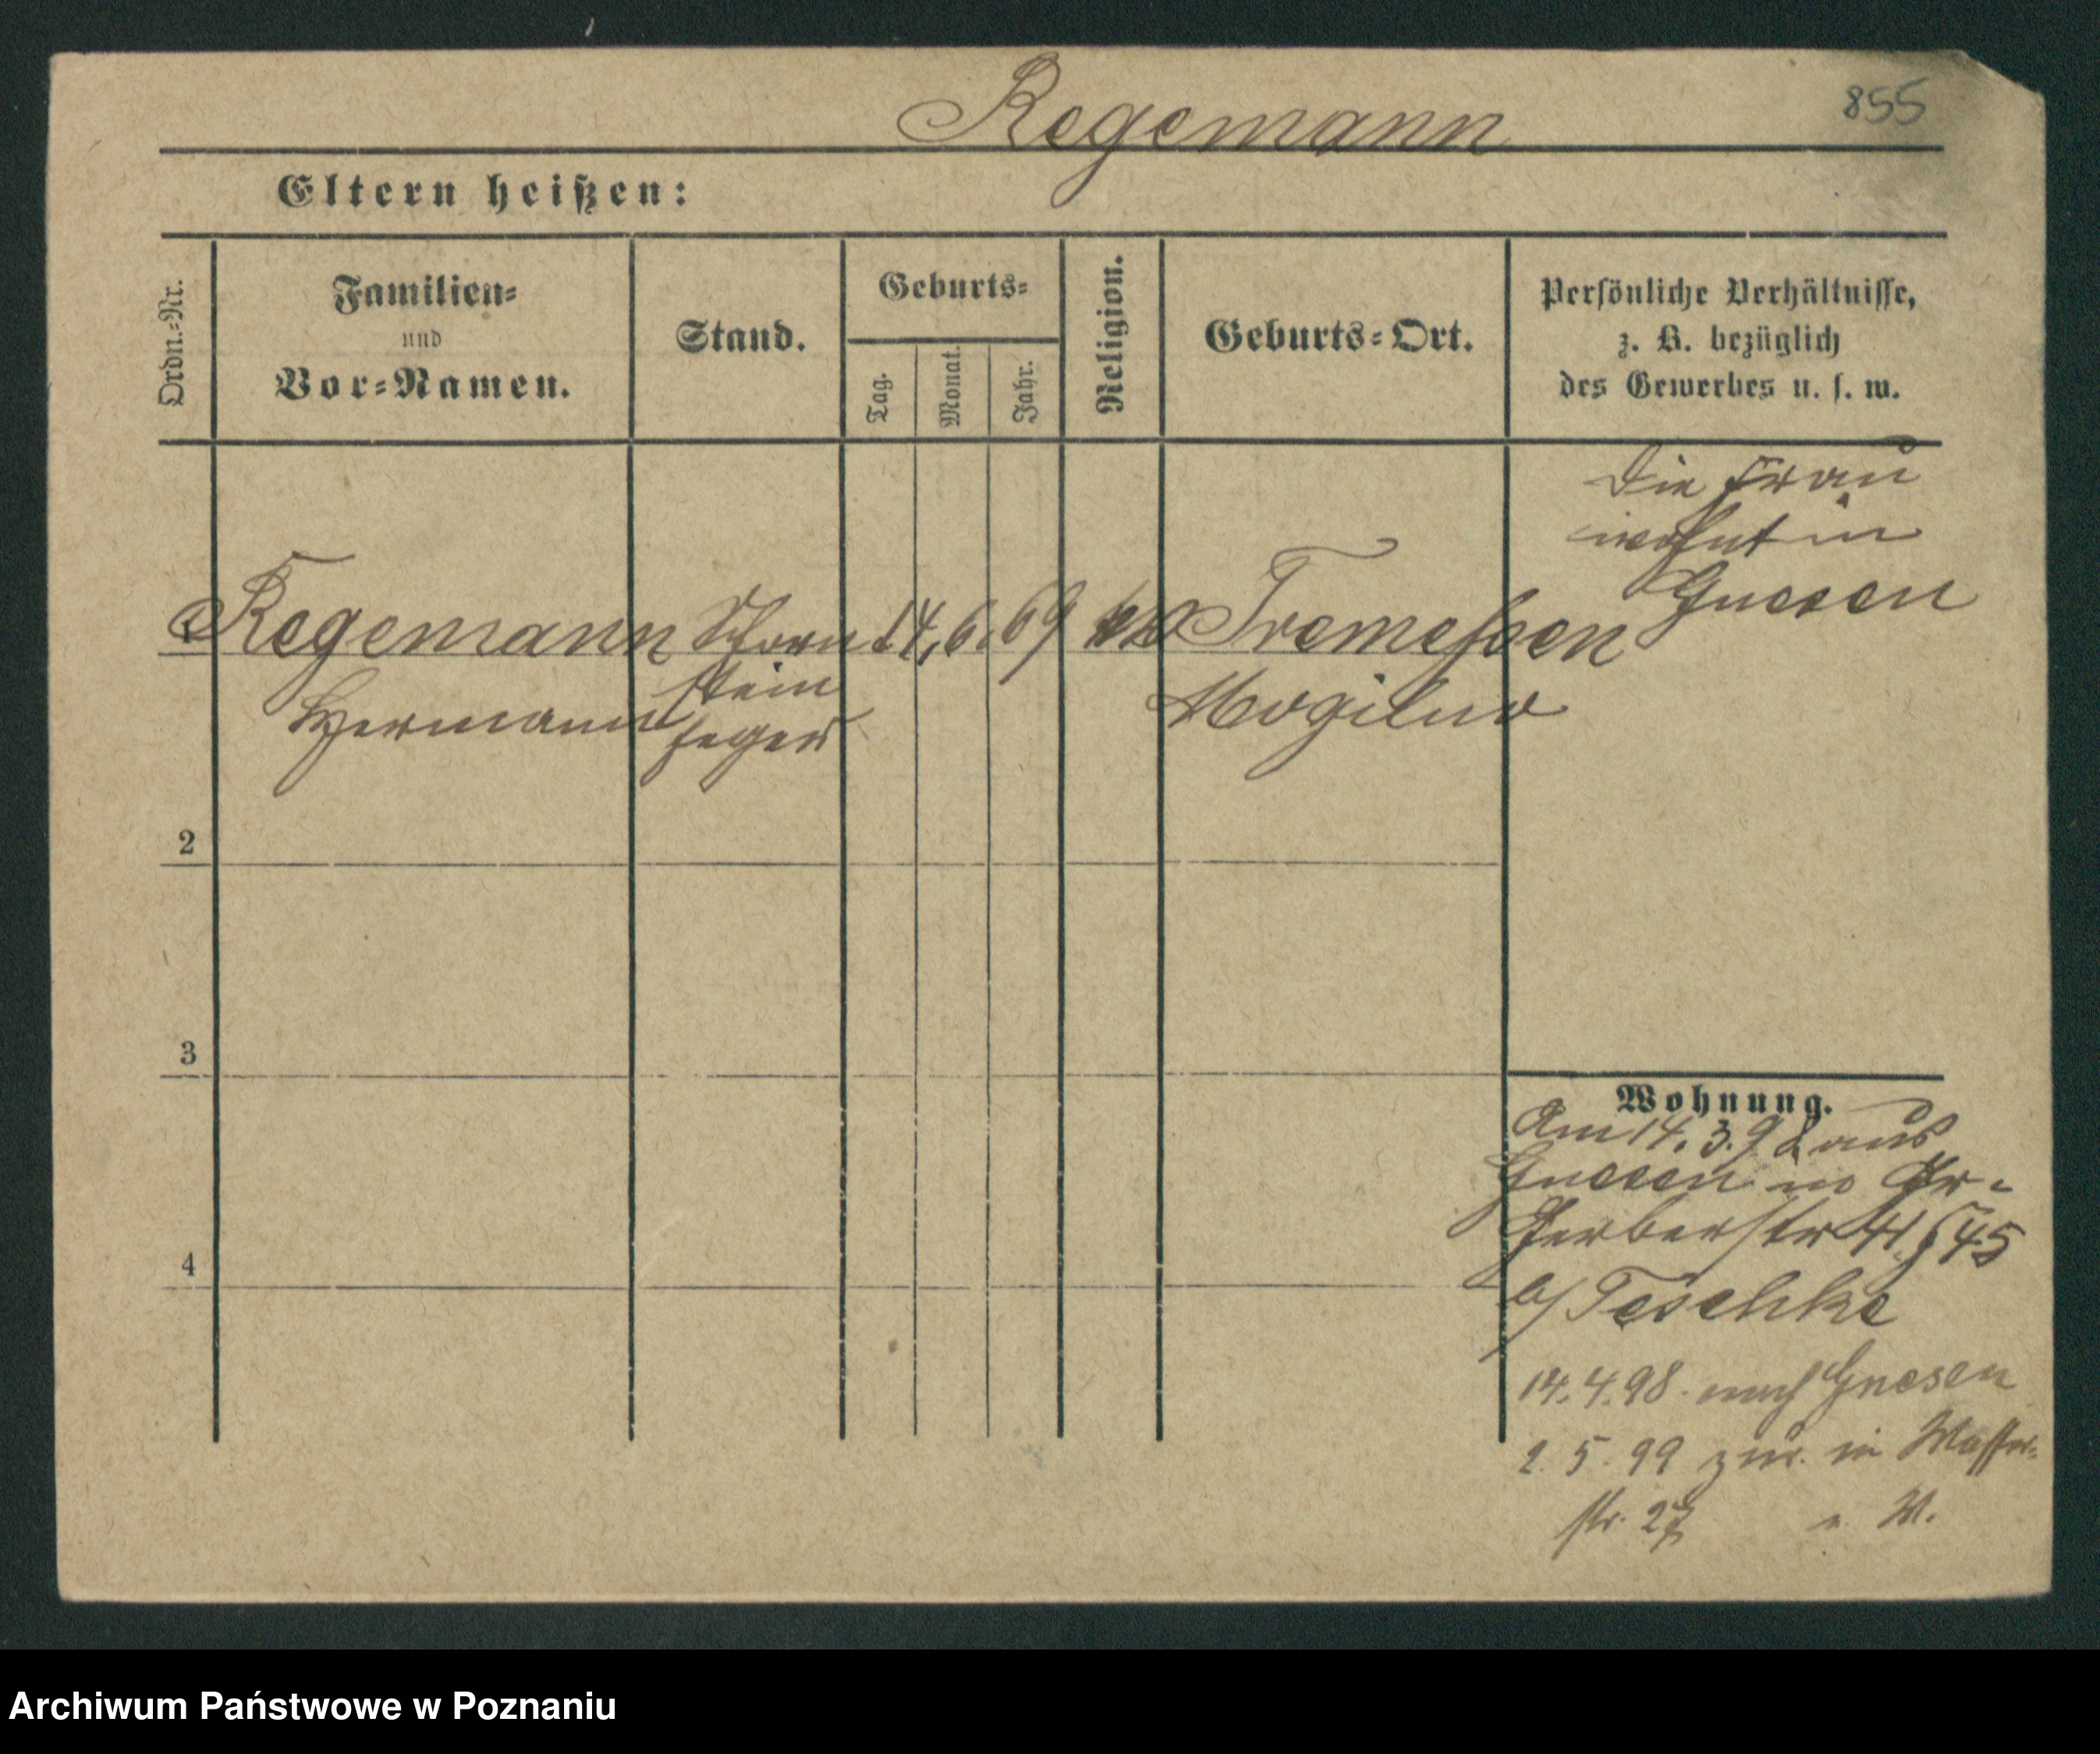 Regemann
855
Eltern heißen:
Ordn.=Nr.
Familien=
und
Vor=Namen.
Stand.
Geburts=
Tag.
Monat.
Jahr.
Religion.
Geburts=Ort.
Persönliche Verhältnisse,
z. B. bezüglich
des Gewerbes u. s. w.
Die Frau
wohnt in
Gnesen
1
Regemann
Hermann
Schorn
stein
feger
14. 6. 69
Tremessen
Mogilno
2
3
4
Wohnung.
Am 14. 3. 98 aus
Gnesen Gr.
Gerberstr 41 45
b/ Teschke
14. 4. 98. nach Gnesen
2. 5. 99 zur. in Wasser=
str. 27 W.
Archiwum Państwowe w Poznaniu